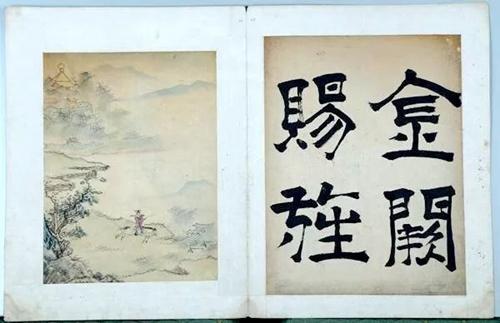 金闕
賜旌